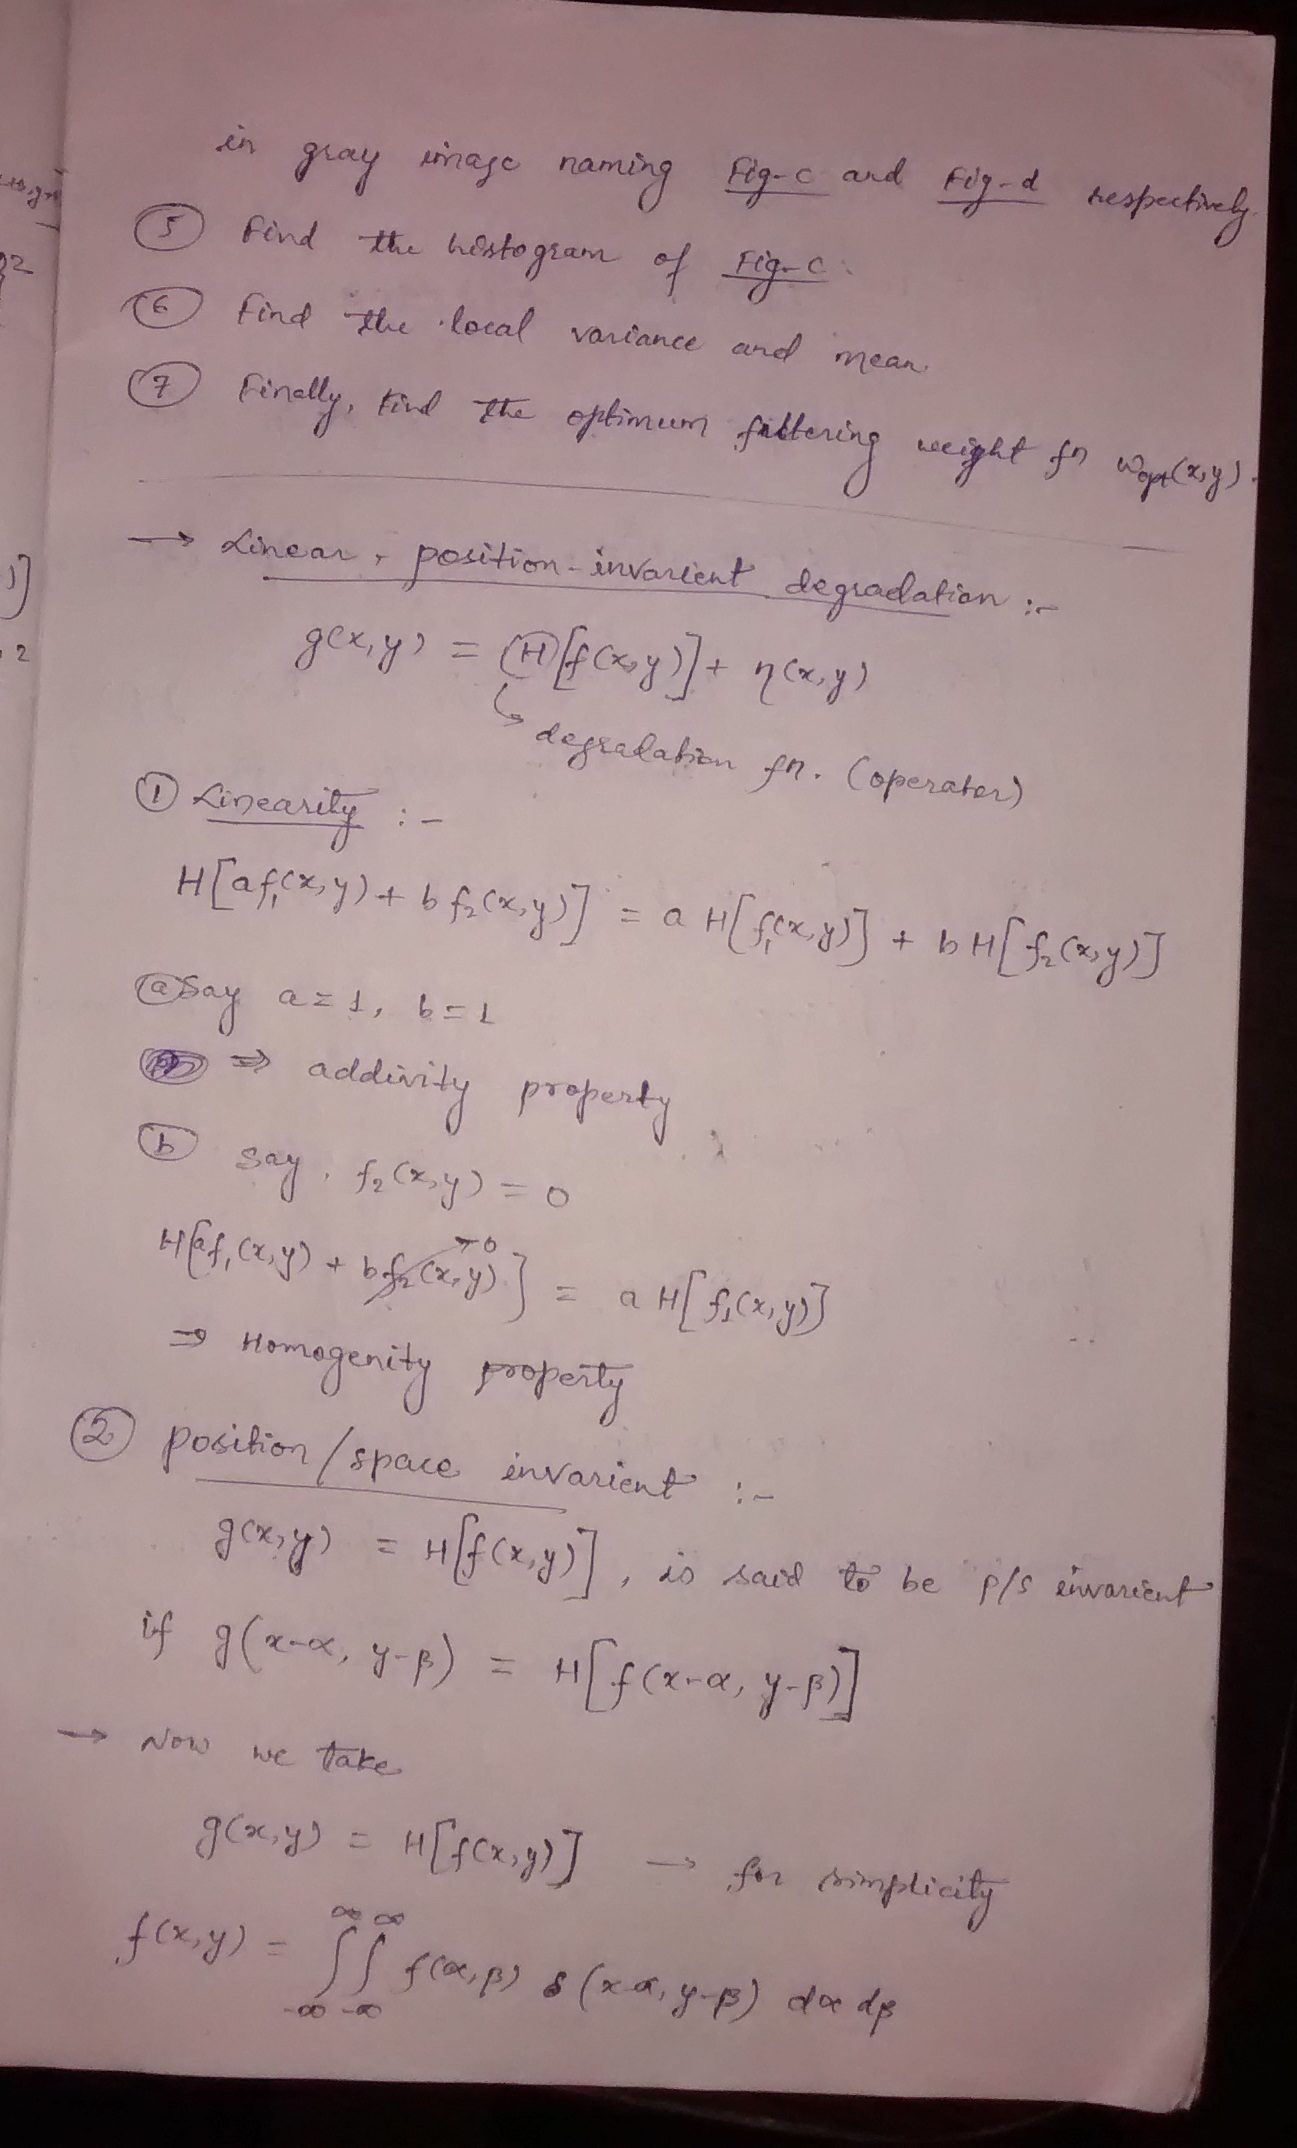 in gray image naming Fig-c and Fig-d respectively
⑤ Find the histogram of Fig-c.
⑥ Find the local variance and mean
⑦ Finally, find the optimum filtering weight fn wopt(x,y).
→ Linear, position-invarient degradation :-
g(x,y) = H[f(x,y)] + η(x,y)
↳ degradation fn. (operator)
① Linearity :-
H[af₁(x,y) + bf₂(x,y)] = aH[f₁(x,y)] + bH[f₂(x,y)]
ⓐ Say a=1, b=1
⇒ addivity property
ⓑ Say f₂(x,y) = 0
H[af₁(x,y) + bf₂(x,y)→0] = aH[f₁(x,y)]
⇒ Homogenity property
② position/space invarient :-
g(x,y) = H[f(x,y)], is said to be p/s invarient
if g(x-α, y-β) = H[f(x-α, y-β)]
→ Now we take
g(x,y) = H[f(x,y)] → for simplicity
f(x,y) = ∫∞-∞ ∫∞-∞ f(α,β) δ(x-α, y-β) dα dβ